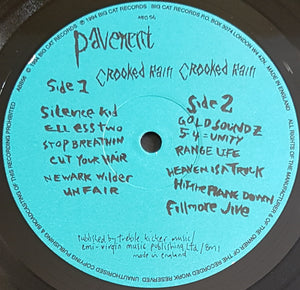 ℗ 1994 BIG CAT RECORDS © 1994 BIG CAT RECORDS
ABB56
ABB 56
Pavement
Crooked Rain Crooked Rain
Side 1
Silence Kid
ELL ESS TWO
STOP BREATHIN
CUT YOUR HAIR
NEWARK Wilder
UNFAIR
Side 2
GOLD SOUNDZ
5-4=UNITY
RANGE LIFE
HEAVEN IS A TRUCK
HIT THE PLANE DOWN
Fillmore Jive
published by treble kicker music/
emi-virgin music publishing ltd/BMI
made in england
ALL RIGHTS OF THE MANUFACTURER & OF THE OWNER OF THE RECORDED WORK RESERVED. UNAUTHORISED COPYING PUBLISHING & BROADCASTING OF THIS RECORDING PROHIBITED